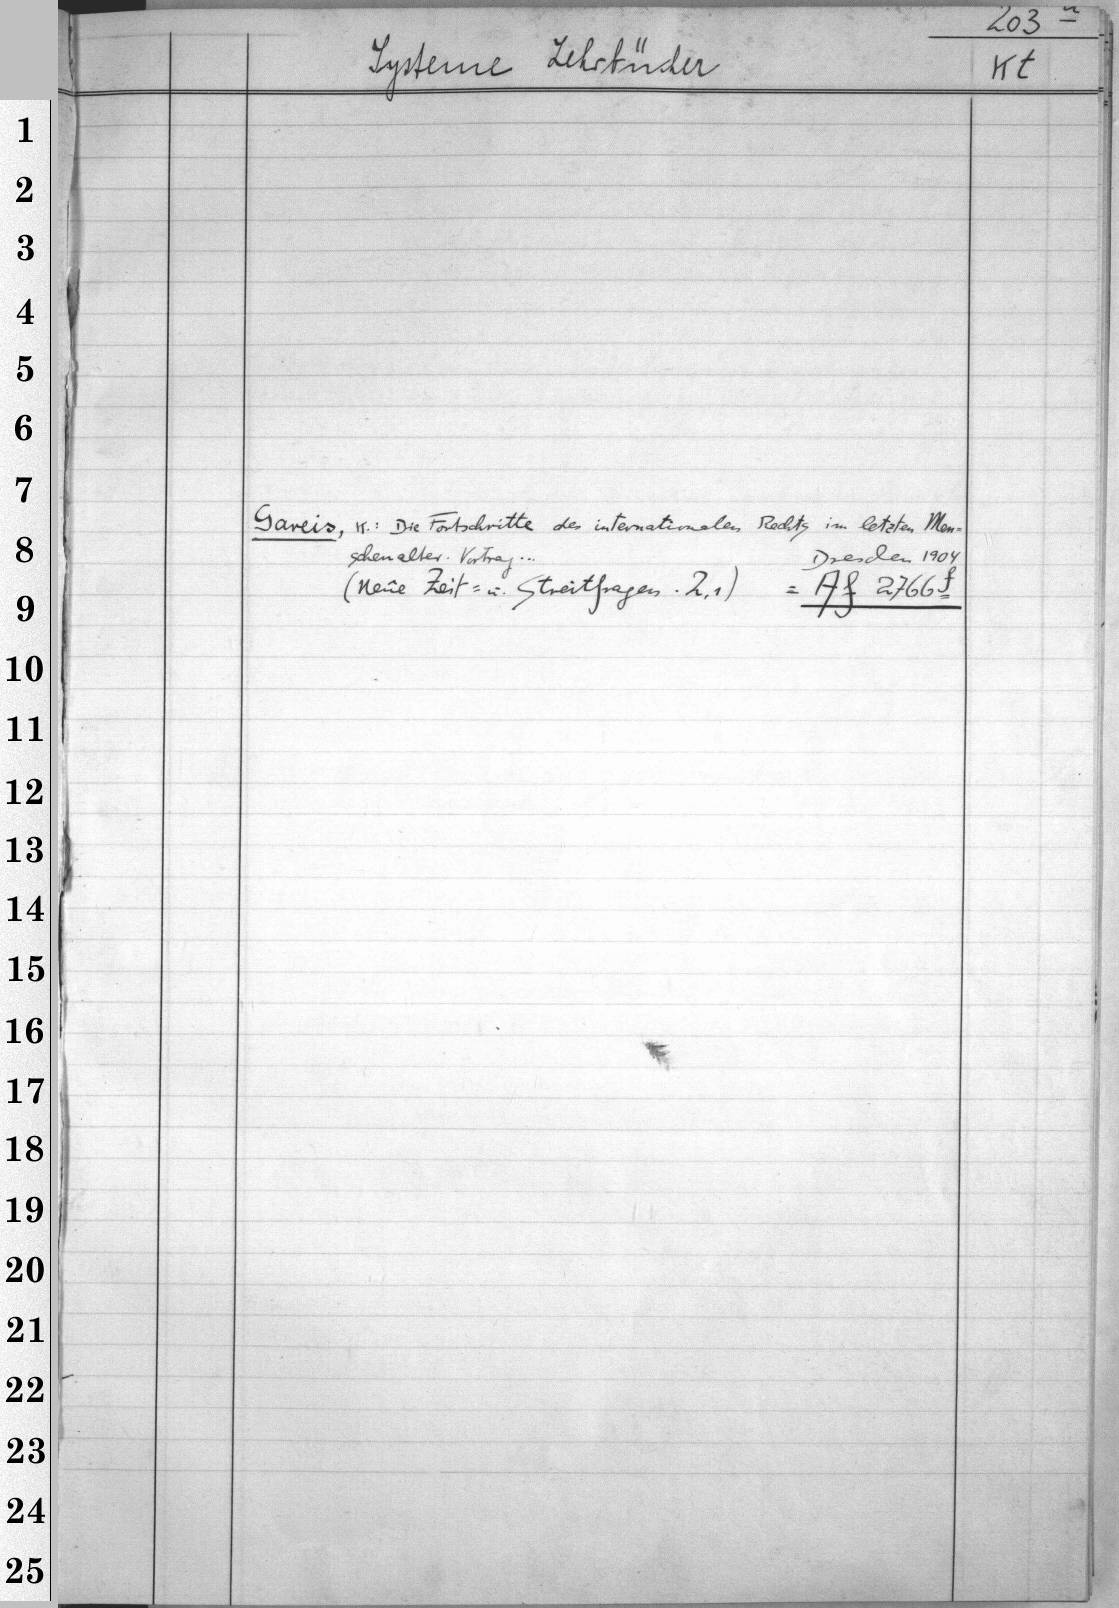 203 a
Systeme Lehrbücher
Kt
1
2
3
4
5
6
7
Gareis, K.: Die Fortschritte des internationalen Rechts im letzten Men=
8
schenalter. Vortrag...
Dresden 1904
(Neue Zeit= u. Streitfragen. 2,1) = Af 2766 f
9
10
11
12
13
14
15
16
17
18
19
20
21
22
23
24
25